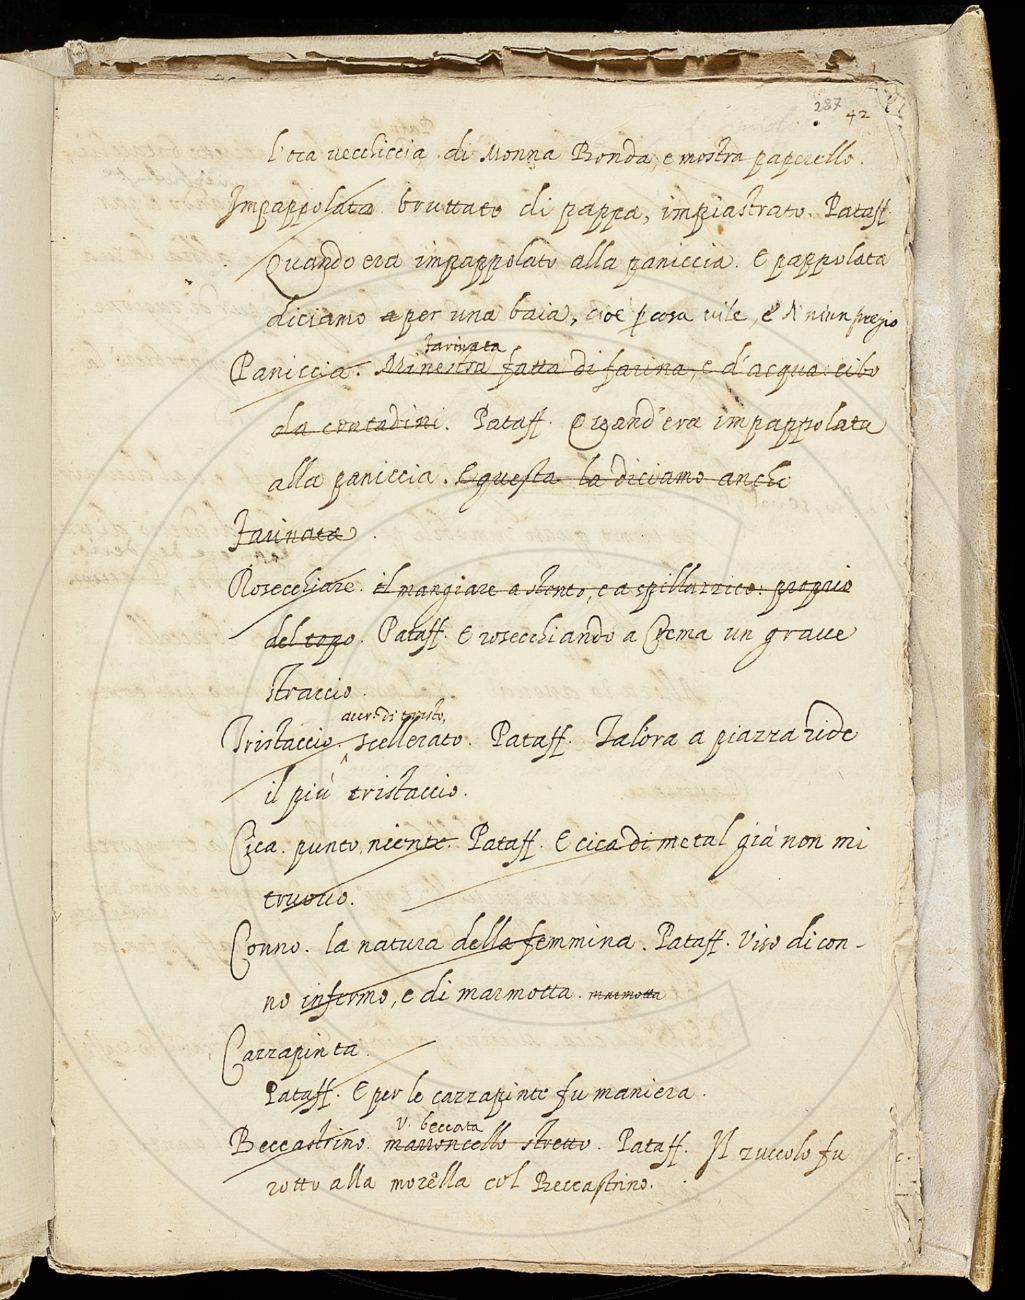 287 42
l'oca vecchiccia di Monna Bonda, e mostra paperello.
Impappolata. bruttato di pappa, impiastrato. Pataff.
Quando era impappolato alla paniccia. E pappolata
diciamo a per una baia, cioè p cosa vile, e di niun pregio
farinata
Paniccia. Minestra fatta di farina, e d'acqua: cibo
da contadini. Pataff. Quand'era impappolata
alla paniccia. E questa la diciamo anche
farinata.
Rosecchiare. il mangiare a stento, e a spilluzzico: proprio
del topo. Pataff. E rosecchiando a Crema un grave
straccio.
accr. di tristo,
Tristaccio. scellerato. Pataff. Talora a piazza ride
il più tristaccio.
Cica. punto, niente. Pataff. E cica di metal già non mi
truovo.
Conno. la natura della femmina. Pataff. Viso di con-
no infermo, e di marmotta. marmotta
Cazzapinta.
Pataff. E per le cazzapinte fu maniera.
v. beccata
Beccastrino. marroncello stretto. Pataff. Il zuccolo fu
rotto alla morella col Beccastrino.